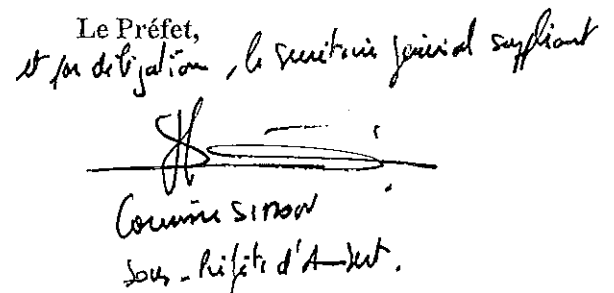 Le Préfet,
et par délégation, le secrétaire général suppléant
Corinne SIMON
Sous-Préfète d'Ambert.